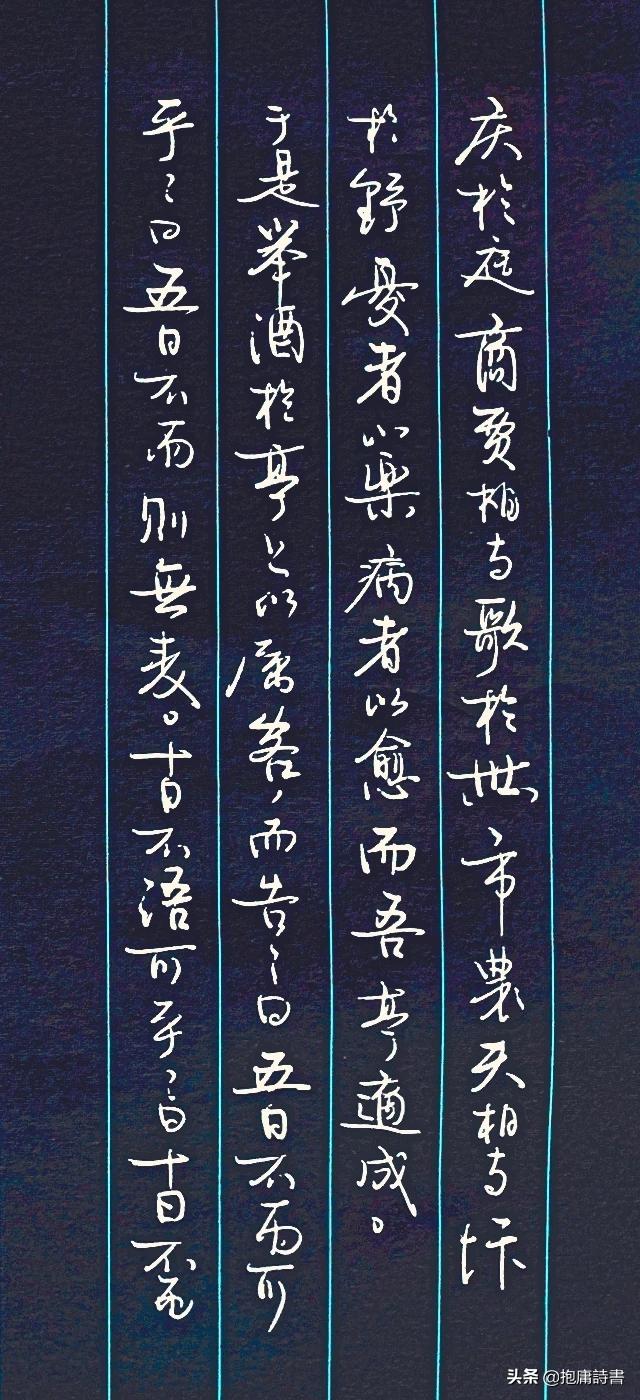 庆於庭商贾相与歌於市農夫相与忭
於野憂者以樂病者以愈而吾亭適成。
于是举酒於亭上以属客，而告之曰五日不雨可
乎？曰五日不雨則無麦。十日不语可乎？曰十日不雨
头条 @抱庸詩書